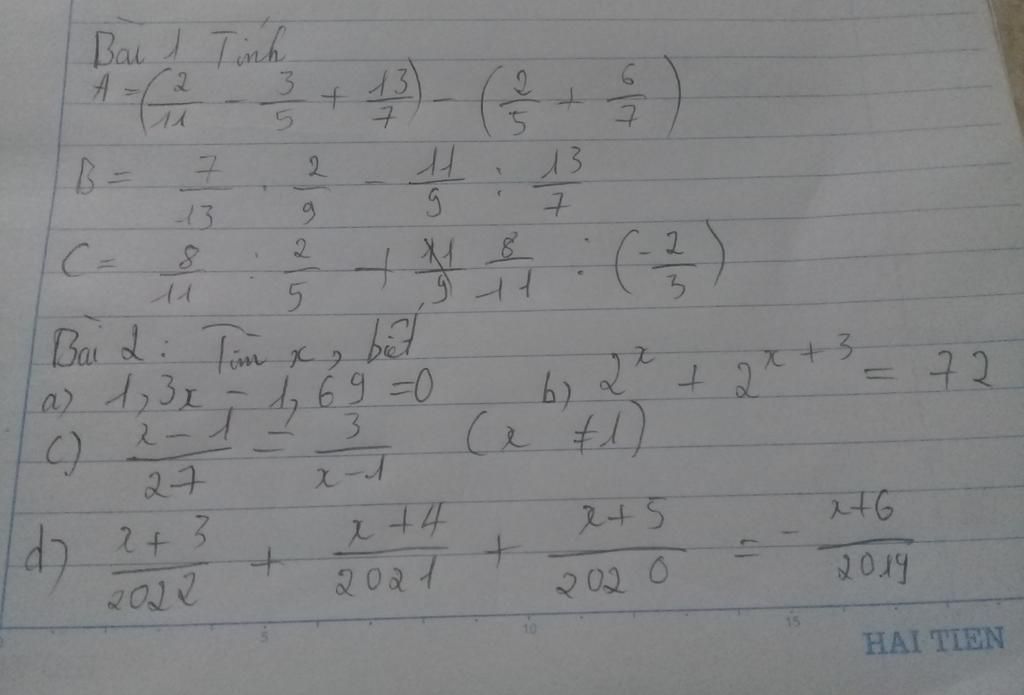 Bài 1 Tính
A = (2/11 - 3/5 + 13/7) - (2/5 + 6/7)
B = 7/13 . 2/9 - 11/9 : 13/7
C = 8/11 : 2/5 + 8/11 : (-2/3)
Bài 2: Tìm x, biết
a) 1,3x - 1,69 = 0 b) 2^x + 2^(x+3) = 72
c) x-1/27 = 3/x-1 (x ≠ 1)
d) x+3/2022 + x+4/2021 + x+5/2020 = - x+6/2019
5 10 15
HAI TIEN